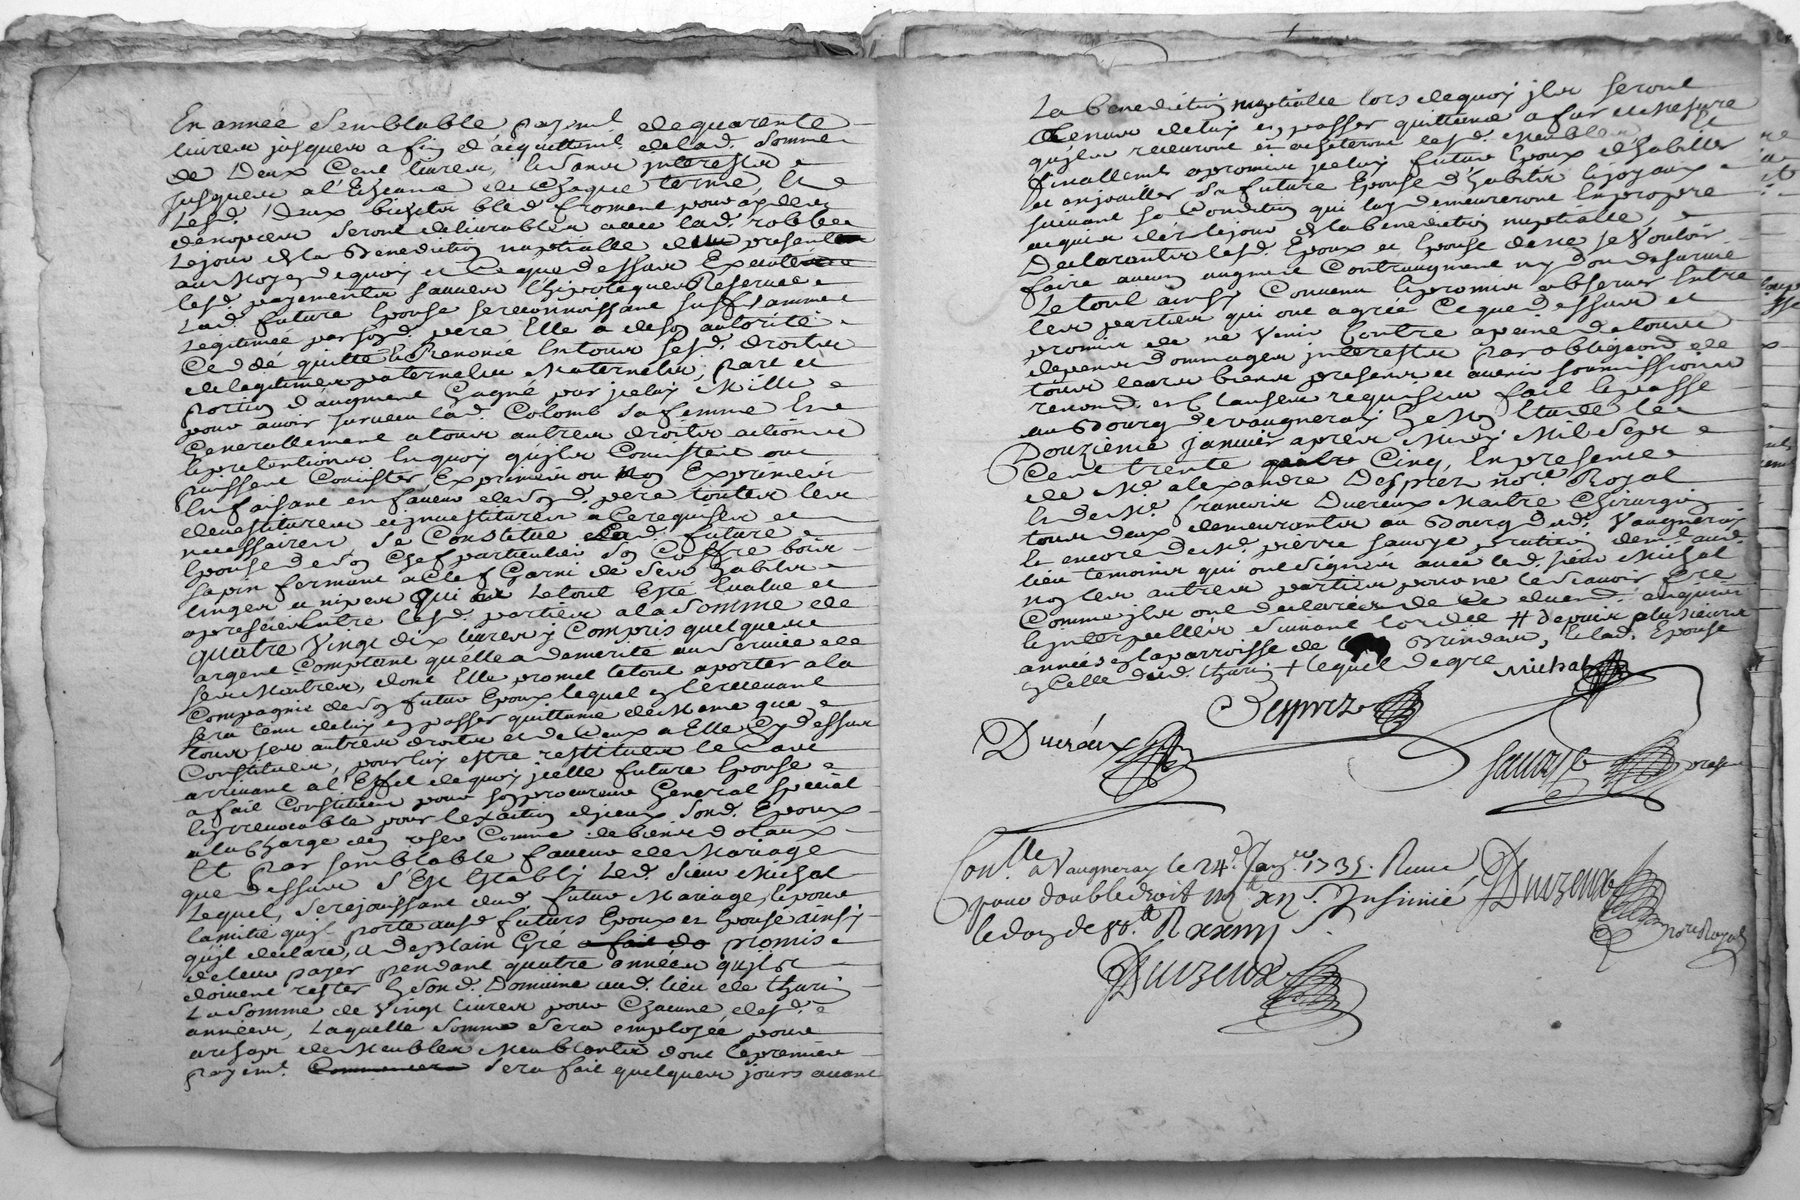 En année semblable payem.t de quarente
livres jusques a fin d'acquittem.t de lad. somme
de Deux Cent livres, le sans interests
jusques a l'Echeance de chaque terme, Et
Lesd. Deux bichets bled froment pour
denopces seront delivrables avec lad. robbe
Le jour de la Benediction nuptialle
au Moyen de quoy et Ce que dessus Executé
lesd. payements sauves l'hipoteque Reservée
Lad. future Epouse se reconnoissant suffisamment
Legitimée par sond. pere Elle a de son autorité
Ceddé quitté & Renoncé En tous sesd. droits
de legitimes paternels Maternels, part et
portion d'augment Gagné par iceluy Mille
pour avoir survecu lad. Colomb sa femme Et
Generallement a tous autres droits actions
& pretentions En quoy qu'ils Consistent ou
puissent Consister, Exprimés ou non Exprimés
En faisant en faveur de sond. pere toutes les
devestitures et investitures a ce requises et
necessaires Se Constitue lad. future
Epouse de son Chef particulier son Coffre bois
sapin fermant a Clef Garni de ses habits
linges et nipes qui Le tout Esté Evalué et
apretié Entre lesd. parties a la somme de
quatre Vingt dix livres y Compris quelque
argent Comptant qu'elle a demerité au service de
ses Maitres, dont Elle promet le tout aporter a la
Compagnie de son futur Epoux lequel en le recevant
sera tenu de luy en passer quittance de Meme que
tous ses autres droits et de Ceux a Elle Cy dessus
Constitués, pour luy estre restitués le Cas
arrivant a l'Effet de quoy icelle future Epouse
a fait Constitué pour son procureur General special
& irrevocable pour l'exaction d'iceux sond. Epoux
a la Charge de user Comme de biens dotaux
Et par semblable faveur de Mariage
que dessus s'Est Establi Led. sieur Michal
Lequel, se rejouissant dud. futur Mariage, & pour
l'amitié qu'il porte ausd. futurs Epoux et Epouse ainsi
qu'il declare, a de plain Gré a fait do promis
de leur payer pendant quatre années qu'ils
doivent rester En sond. Domaine aud. lieu de thuri
La somme de Vingt livres pour Chacune desd.
années, Laquelle somme sera employée pour
achapt de Meubles Meublants dont le premier
payem.t Commencera sera fait quelques jours avant
La benediction nuptialle lors de quoy ils seront
tenus de luy en passer quittance a fur et Mesure
qu'ils recevront et acheteront lesd. Meubles, Et
finallement a promis iceluy futur Epoux d'habiller
et enjoailler sa future Epouse d'habits & joyaux
suivant sa Condition qui luy demeureront En propre
acquis dez le jour de la benediction nuptialle,
Declarants lesd. Epoux et Epouse de ne se Vouloir
faire aucun augment Contraugment ny don de survie
Le tout ainsi Convenu & promis observer Entre
les parties qui ont agréé Ce que dessus et
promis de ne Venir Contre a paine de tous
depens dommages interests par obligaond. de
tous leurs biens presents et avenir soumissions
renond. et Clauses requises fait & passé
au Bourg de vaugneray En Mon Etude le
Douzieme janvier apres Midy Mil Sept
Cent trente quatre Cinq, En presence
de M.e alexandre Desprez not.re Royal
& de M.e francois Ducreux Maitre Chirurgien
tous deux demeurants au Bourg dud. Vaugneray
& encore de M.e pierre Savoye praticien dem.t aud.
lieu temoins qui ont signés avec led. sieur Michal
non les autres parties pour ne le scavoir faire
Comme ils ont declarés de Ce duem.t enquis
& interpellés suivant l'ord.ce # depuis plusieurs
années en la parroisse de Brindas, & lad. Epouse
en celle dud. thuri + lequel de gre Michal
Desprez
Ducreux
Savoye presn
Con.lle a Vaugneray le 24.e Janv.er 1735. Receu
pour double droit Insinué
le d. jour
Duizeux
Duizeux
no.re Royal